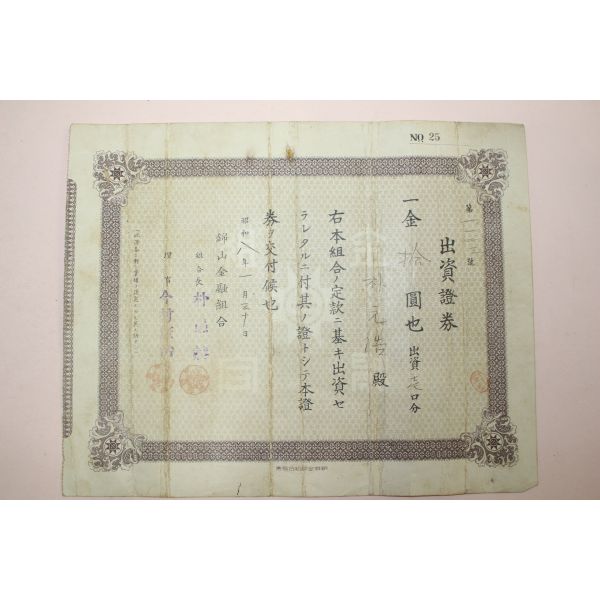 NO 25
第 號
出資證券
一金拾圓也 出資 口分
元浩殿
右本組合ノ定款ニ基キ出資セ
ラレタルニ付其ノ證トシテ本證
券ヲ交付候也
昭和八年一月三十日
錦山金融組合
組合長
理事